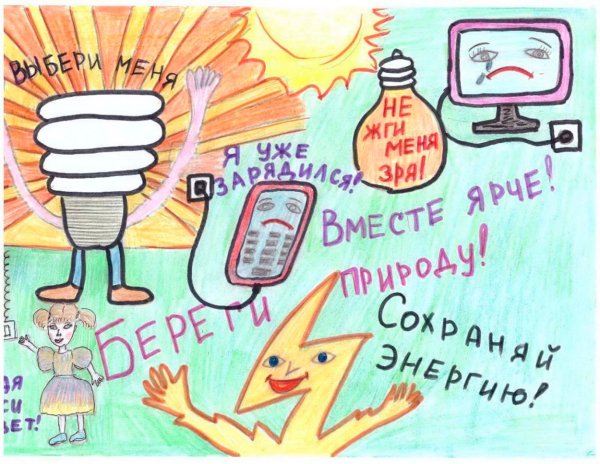 ВЫБЕРИ МЕНЯ
НЕ
ЖГИ
МЕНЯ
ЗРЯ!
Я УЖЕ
ЗАРЯДИЛСЯ!
ВМЕСТЕ ЯРЧЕ!
БЕРЕГИ ПРИРОДУ!
СОХРАНЯЙ
ЭНЕРГИЮ!